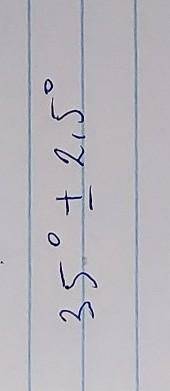 35° ± 2,5°